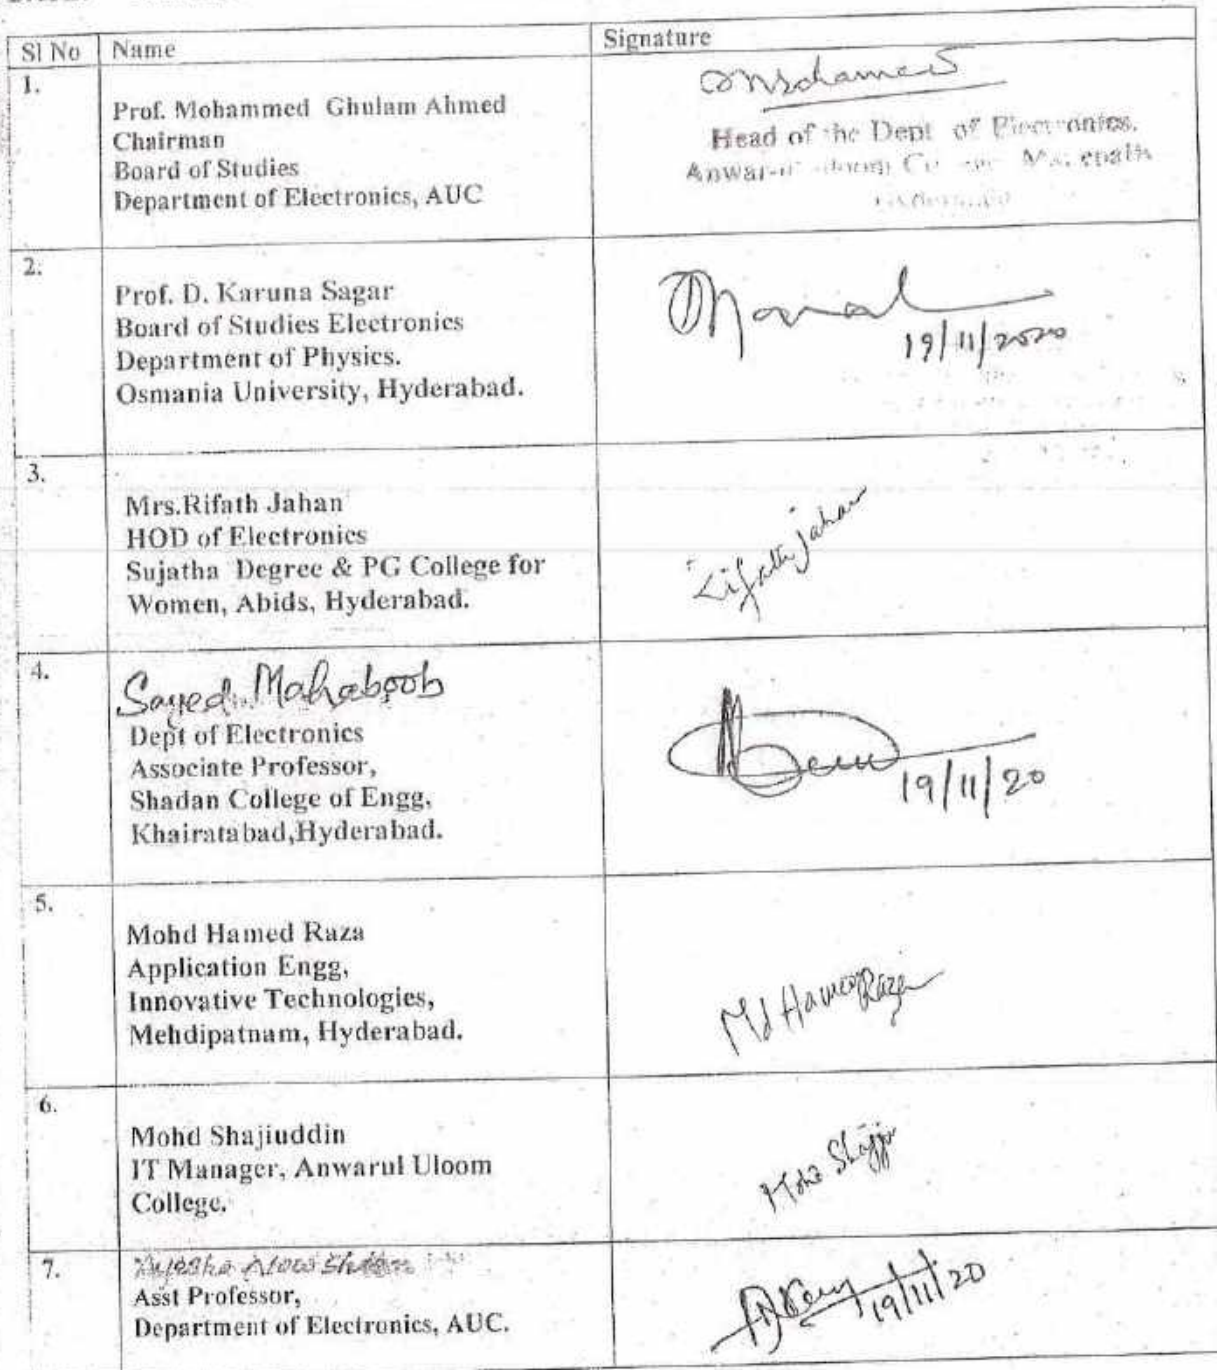 Sl No Name Signature
1.
Prof. Mohammed Ghulam Ahmed
Chairman
Board of Studies
Department of Electronics, AUC
Head of the Dept of Electronics.
2.
Prof. D. Karuna Sagar
Board of Studies Electronics
Department of Physics.
Osmania University, Hyderabad.
19/11/2020
3.
Mrs.Rifath Jahan
HOD of Electronics
Sujatha Degree & PG College for
Women, Abids, Hyderabad.
Rifath Jahan
4.
Sayed Mahaboob
Dept of Electronics
Associate Professor,
Shadan College of Engg,
Khairatabad,Hyderabad.
19/11/20
5.
Mohd Hamed Raza
Application Engg,
Innovative Technologies,
Mehdipatnam, Hyderabad.
Md Hamed Raza
6.
Mohd Shajiuddin
IT Manager, Anwarul Uloom
College.
7.
Asst Professor,
Department of Electronics, AUC.
19/11/20